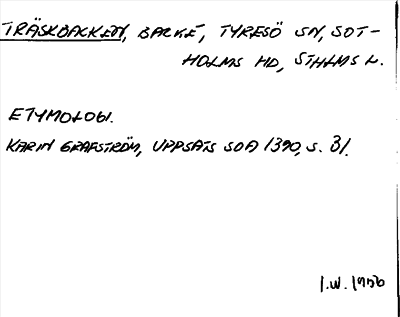 TRÄSKBACKEN, BACKE, TYRESÖ SN, SOT-
HOLMS HD, STHLMS L.
ETYMOLOGI.
KARIN GRAFSTRÖM, UPPSATS SOA 1390, S. 31.
I.W. 1956